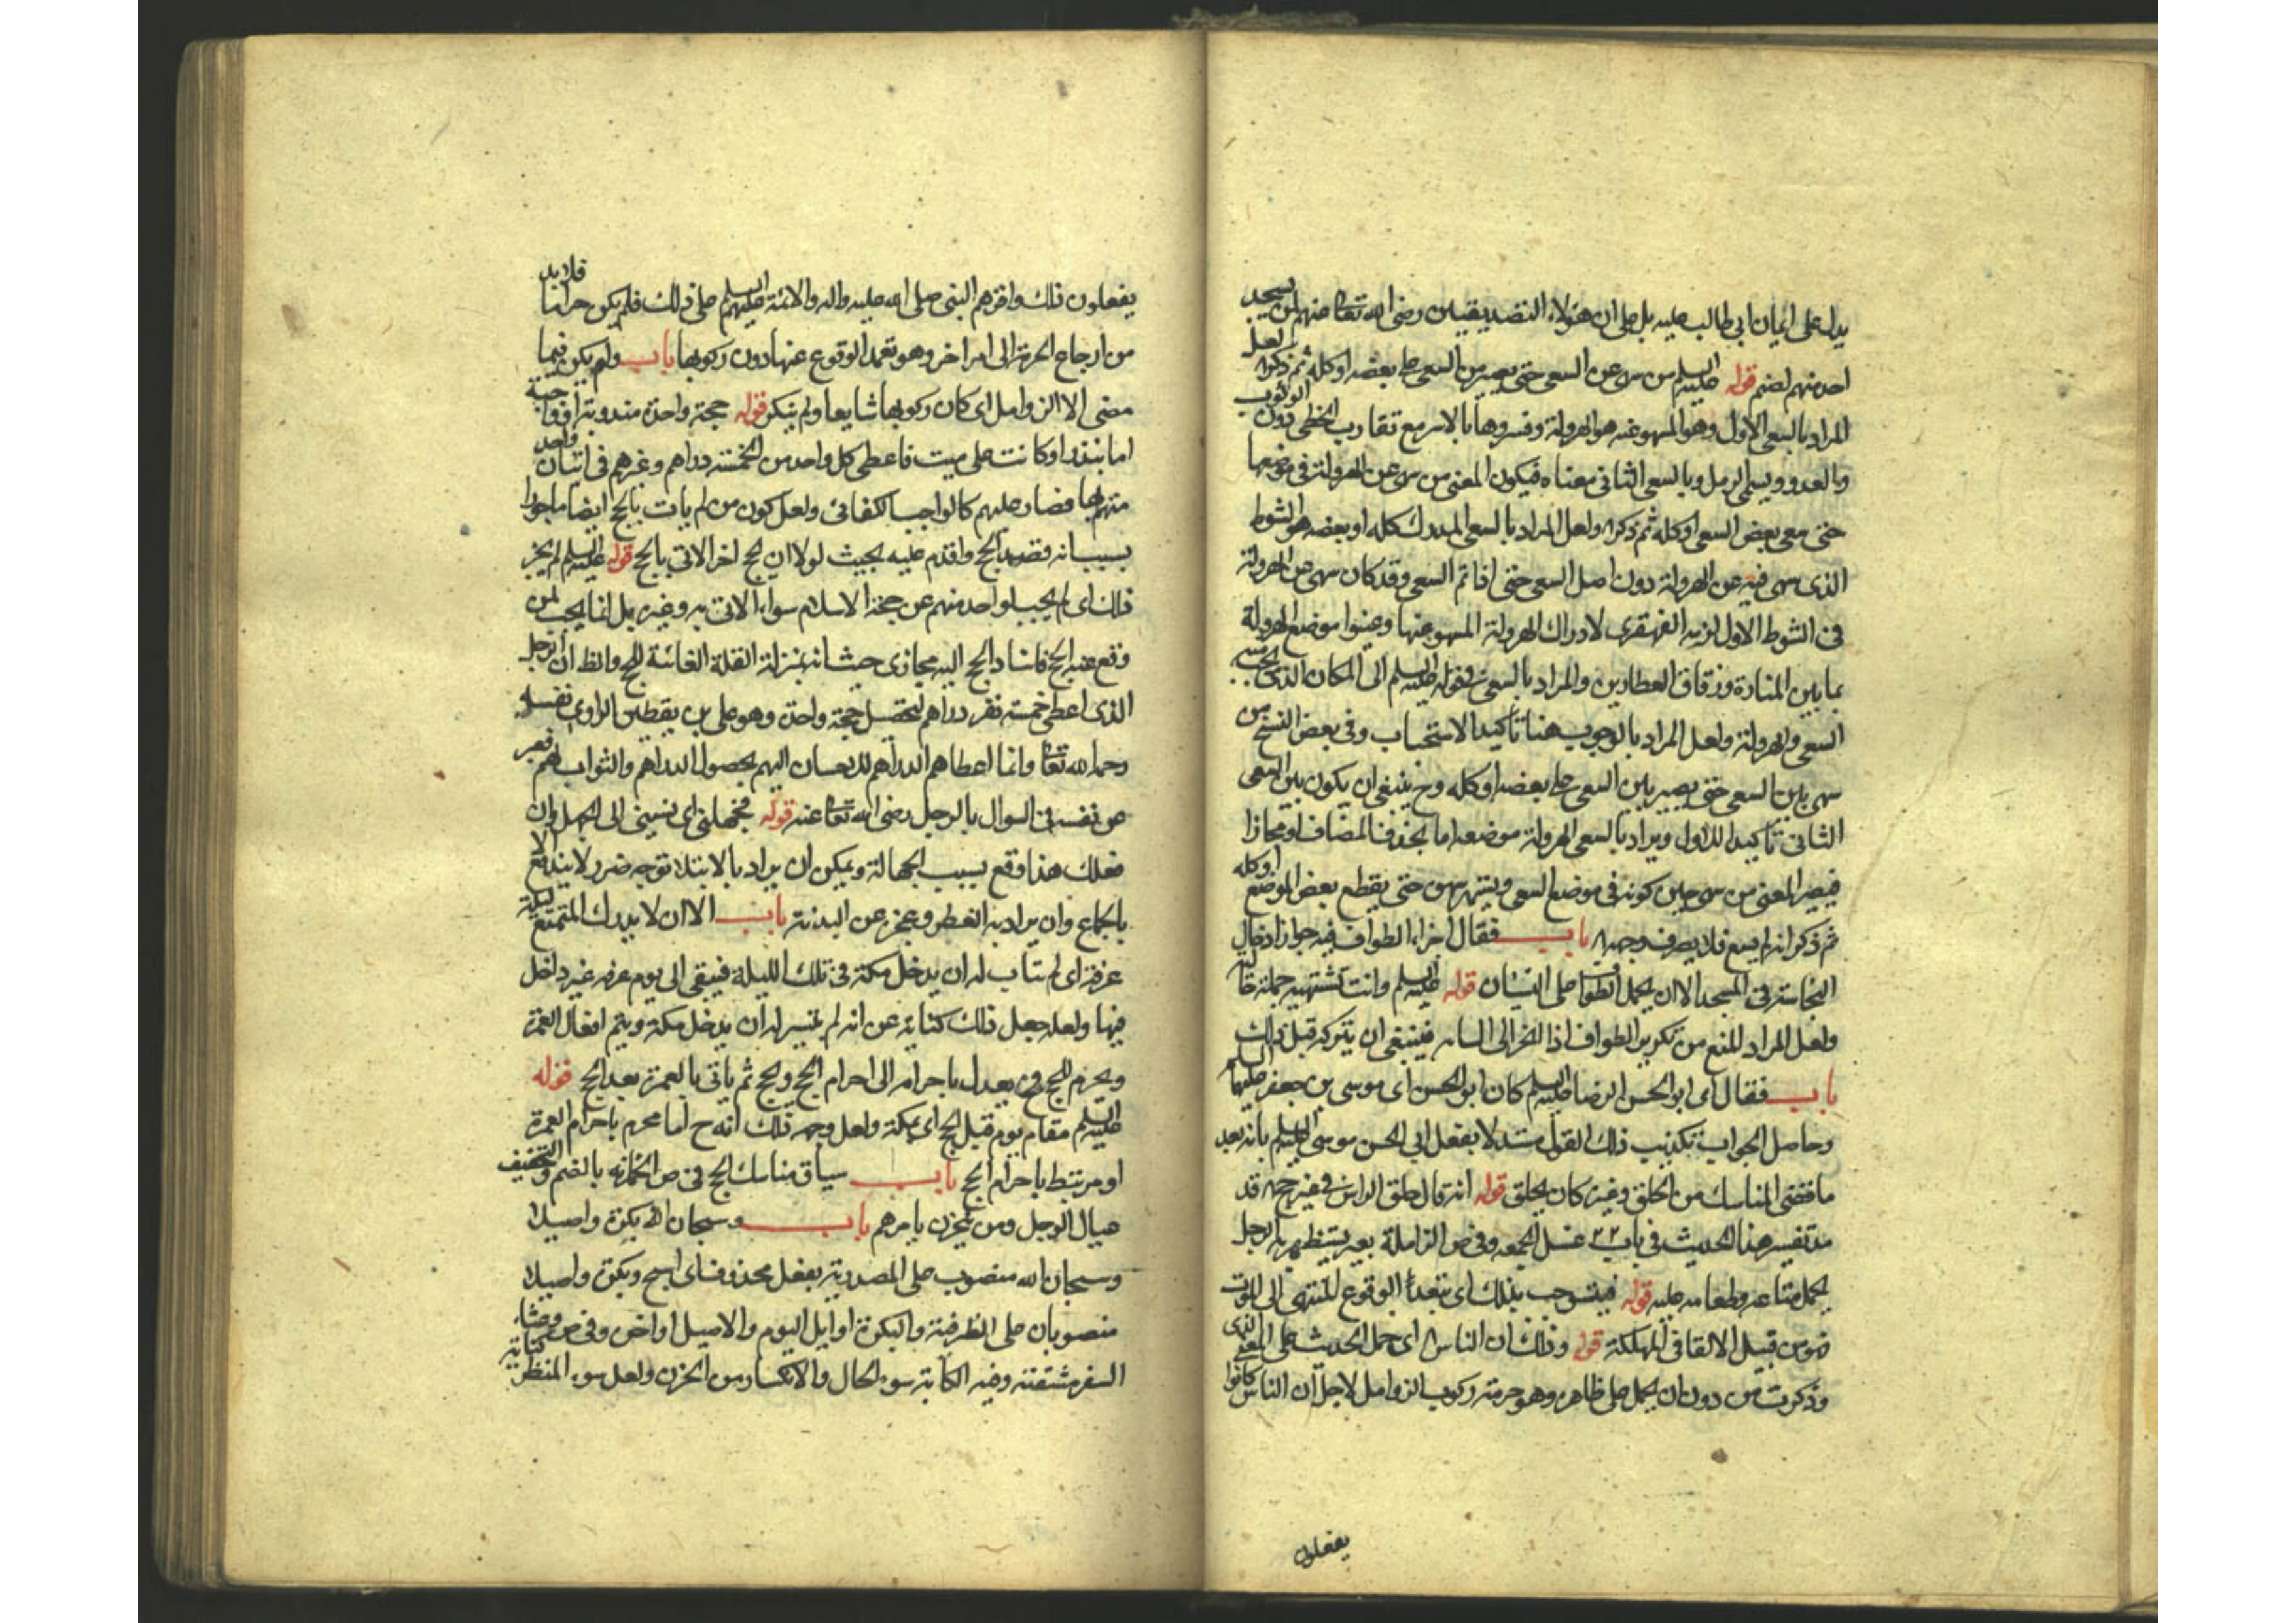 يدل على ايمان ابي طالب عليه بل على ان هؤلاء التصديقين رضى الله تعالى عنهم لمن يسجد
احد منهم لصنم قوله عليه السلم من سهى عن السعى حتى يصير من السعى على بعضه او كله ثم ذكر لعل
المراد بالسعى الاول وهو المسهو عنه هو الهرولة وفسروها بالاسراع مع تقارب الخطى دون الوثوب
والعدو ويسمى الرمل وبالسعى الثانى معناه فيكون المعنى من سهى عن الهرولة فى موضعها
حتى سعى بعض السعى او كله ثم ذكر ولعل المراد بالسعى المدرك كله او بعضه هو الشوط
الذى سهى فيه عن الهرولة دون اصل السعى حتى اذا تم السعى وقد كان سهى عن الهرولة
فى الشوط الاول لزمه القهقرى لادراك الهرولة المسهو عنها وعينوا موضع الهرولة
بما بين المنارة وزقاق العطارين والمراد بالسعى فى قوله عليه السلم الى المكان الذى يجب فيه
السعى والهرولة ولعل المراد بالوجوب هنا تاكيد الاستحباب وفى بعض النسخ من
سهى بين السعى حتى يصير بين السعى على بعضه او كله وح ينبغى ان يكون بين السعى
الثانى تاكيدا للاول ويراد بالسعى الهرولة موضعه اما بحذف المضاف او مجازا
فيصير المعنى من سهى حين كونه فى موضع السعى ويستمر سهوه حتى يقطع بعض الموضع او كله
ثم ذكر انه لم يسع فلا يصرف وجهه باب فقال اجزاء الطواف فيه جواز ادخال
النجاسة فى المسجد الا ان يحمل الطواف على النسيان قوله عليه السلم وانت تشتهيه جملة حالية
ولعل المراد المنع من تكرير الطواف اذا انجر الى السام فينبغى ان يتركه قبل ذلك
باب فقال اى ابو الحسن الرضا عليه السلم كان ابو الحسن اى موسى بن جعفر عليهما السلم
وحاصل الجواب تكذيب ذلك القول مستدلا بفعل ابى الحسن موسى عليه السلم بانه بعد
ما قضى المناسك من الحلق وغيره كان يحلق قوله انه قال حلق الراس فى غير حج قد
مر تفسير هذا الحديث فى باب ٢٢ غسل الجمعه وفى ص الزاملة بعير يستظهر به الرجل
يحمل متاعه وطعامه عليه قوله فيستوجب بذلك اى بتعمد الوقوع المنتهى الى الموت
فهو من قبيل الالقاء فى المهلكة قوله وذلك ان الناس اى حمل الحديث على المعنى الذى
وذكرت من دون ان يحمل على ظاهره وهو حرمة ركوب الزوامل لاجل ان الناس كانوا
يفعلون
يفعلون ذلك واقرهم النبى صلى الله عليه واله والائمة عليهم السلم على ذلك فلم يكن حراما فلا بد
من ارجاع الحرمة الى امر اخر وهو تعمد الوقوع عنها دون ركوبها باب ولم يكن فيما
مضى الا الزوامل اى كان ركوبها شايعا ولم ينكر قوله حجة واحدة مندوبة او واجبة
اما بنذر او كانت على ميت فاعطى كل واحد من الخمسة دراهم وغرهم فى اتيان واحد
منهم بها فصار عليهم كالواجب الكفائى ولعل كون من لم يات بالحج ايضا ماجورا
بسبب انه قصد الحج واقدم عليه بحيث لولا ان يحج اخر لاتى بالحج قوله عليه السلم لم يجز
ذلك اى لم يحسب لواحد منهم عن حجة الاسلام سواء الاتى به وغيره بل انما يحسب لمن
وقع عنه الحج فاسناد الحج اليه مجازى حيث انه بمنزلة العلة الغائية للحج والظ ان الرجل
الذى اعطى خمسة نفر دراهم لتحصيل حجة واحدة وهو على بن يقطين الراوى نفسه
رحمه الله تعالى وانما اعطاهم الدراهم للاحسان اليهم بحصول الدراهم والثواب لهم فعبر
عن نفسه فى السوال بالرجل رضى الله تعالى عنه قوله فجهلنى اى نسبنى الى الجهل وان
فعلك هذا وقع بسبب الجهالة ويمكن ان يراد بالابتلاء توجه ضرر لا يندفع الا
بالجماع وان يراد به الفطر وعجزه عن البدنة باب الا ان لا يدرك المتمتع ليلة
عرفة اى لم يتات له ان يدخل مكة فى تلك الليلة فيبقى الى يوم عرفه غير داخل
فيها ولعله جعل ذلك كناية عن انه لم يتيسر له ان يدخل مكة ويتم افعال العمرة
ويحرم للحج فح يعدل باحرامه الى احرام الحج ويحج ثم ياتى بالعمرة بعد الحج قوله
عليه السلم مقام يوم قبل الحج اى بمكة ولعل وجه ذلك انه ح اما محرم باحرام العمرة
او مرتبط باحرام الحج باب سياق مناسك الحج فى ص الحزانه بالضم والتخفيف
عيال الرجل ومن يتحزن بامرهم باب وسبحان الله بكرة واصيلا
وسبحان الله منصوب على المصدرية بفعل محذوف اى اسبح وبكرة واصيلا
منصوبان على الظرفية والبكرة اوايل اليوم والاصيل اواخره وفى ص وعثاء
السفر مشقته وفيه الكابة سوء الحال والانكسار من الحزن ولعل سوء المنظر كناية